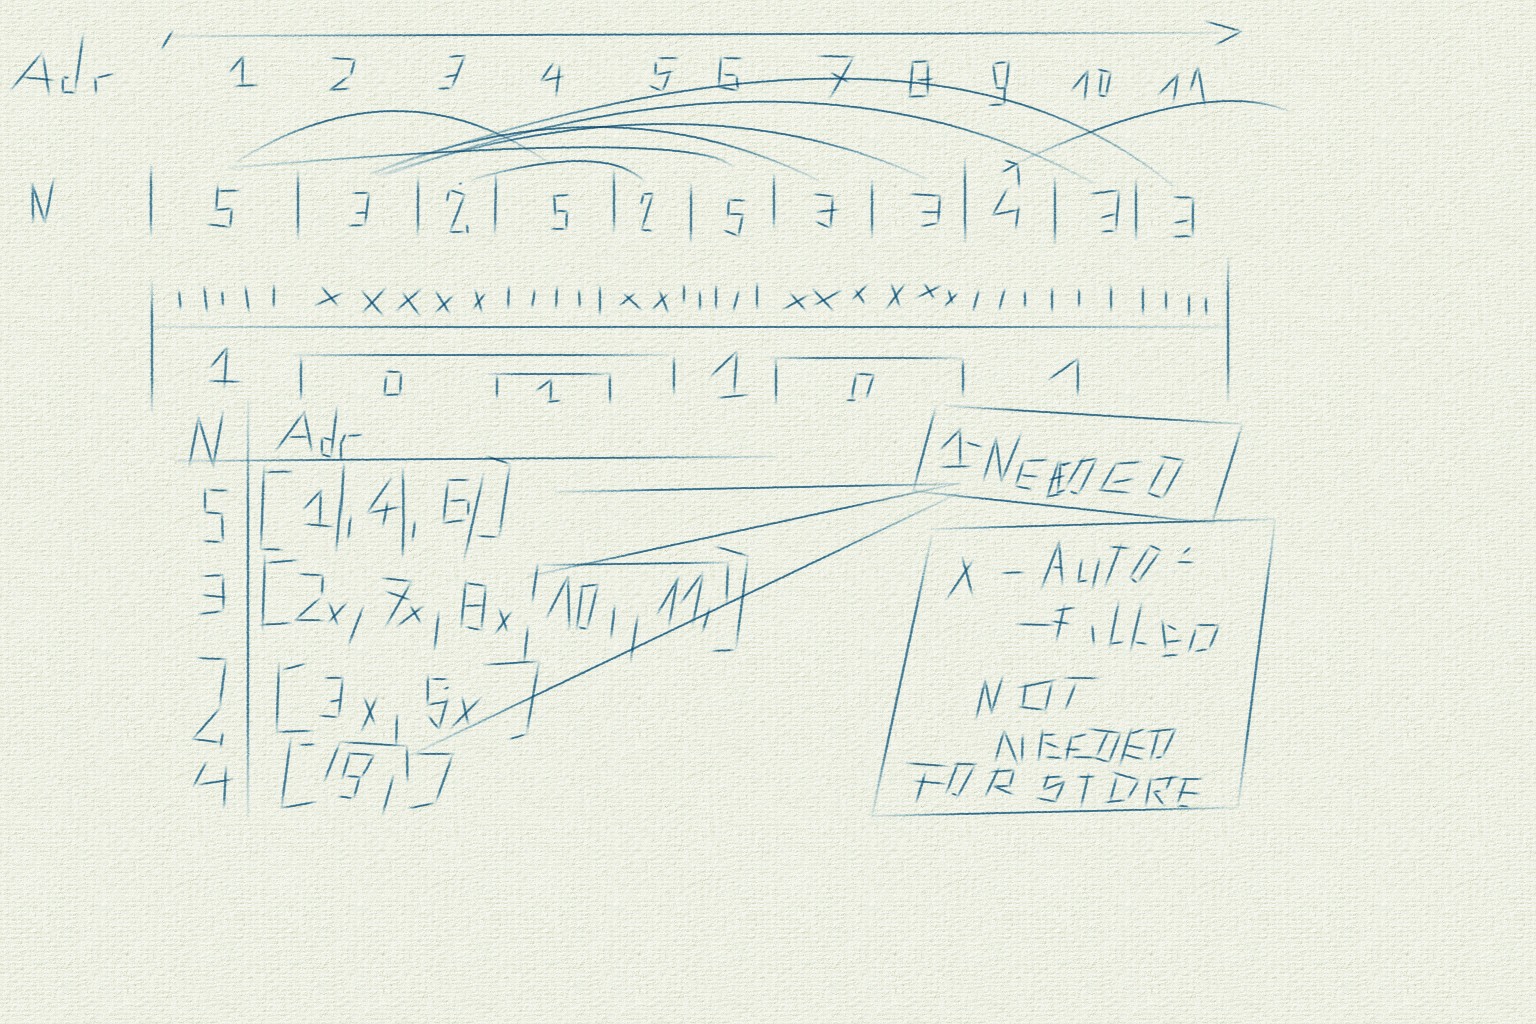 Adr 1 2 3 4 5 6 7 8 9 10 11
N | 5 | 3 | 2 | 5 | 2 | 5 | 3 | 3 | 4 | 3 | 3
| | | | | x x x x x | | | | | x x | | | | | | x x x x x x | | | | | | | | | | |
1 0 1 1 0 1
N Adr
5 [1|, 4|, 6|]
3 [2x, 7x, 8x, 10, 11,]
2 [3x, 5x]
4 [9,]
1-NEEDED
x - AUTO-
-FILLED
NOT
NEEDED
FOR STORE